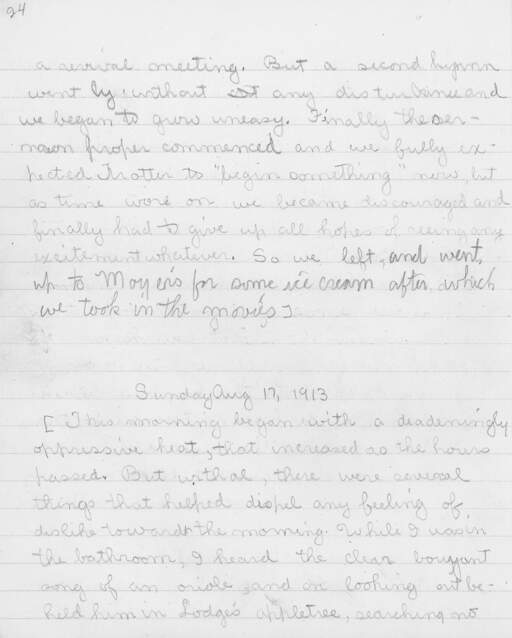 24
a revival meeting. But a second hymn
went by without any disturbance and
we began to grow uneasy. Finally the ser-
mon proper commenced and we fully ex-
pected Trotter to "begin something" now, but
as time wore on we became discouraged and
finally had to give up all hopes of seeing any
excitement whatever. So we left, and went
up to Moyer's for some ice cream after which
we took in the movies]
Sunday Aug 17, 1913
[This morning began with a deadeningly
oppressive heat, that increased as the hours
passed. But withal, there were several
things that helped dispel any feeling of
dislike towards the morning. While I was in
the bathroom, I heard the clear bouyant
song of an oriole, and on looking out be-
held him in Lodge's appletree, searching no